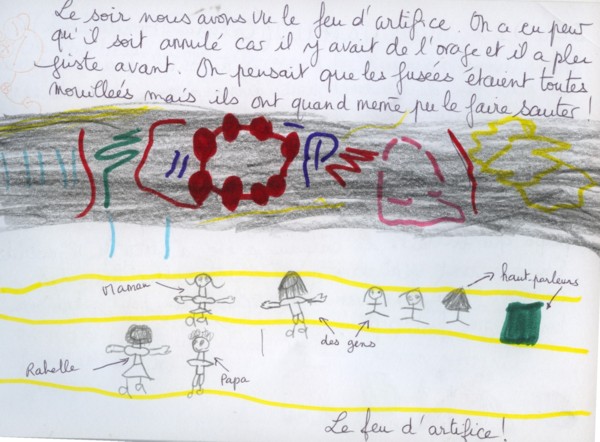 Le soir nous avons vu le feu d'artifice. On a eu peur
qu'il soit annulé car il y avait de l'orage et il a plu
juste avant. On pensait que les fusées étaient toutes
mouillées mais ils ont quand même pu le faire sauter!
Maman
haut-parleurs
des gens
Rahelle
Papa
Le feu d'artifice!